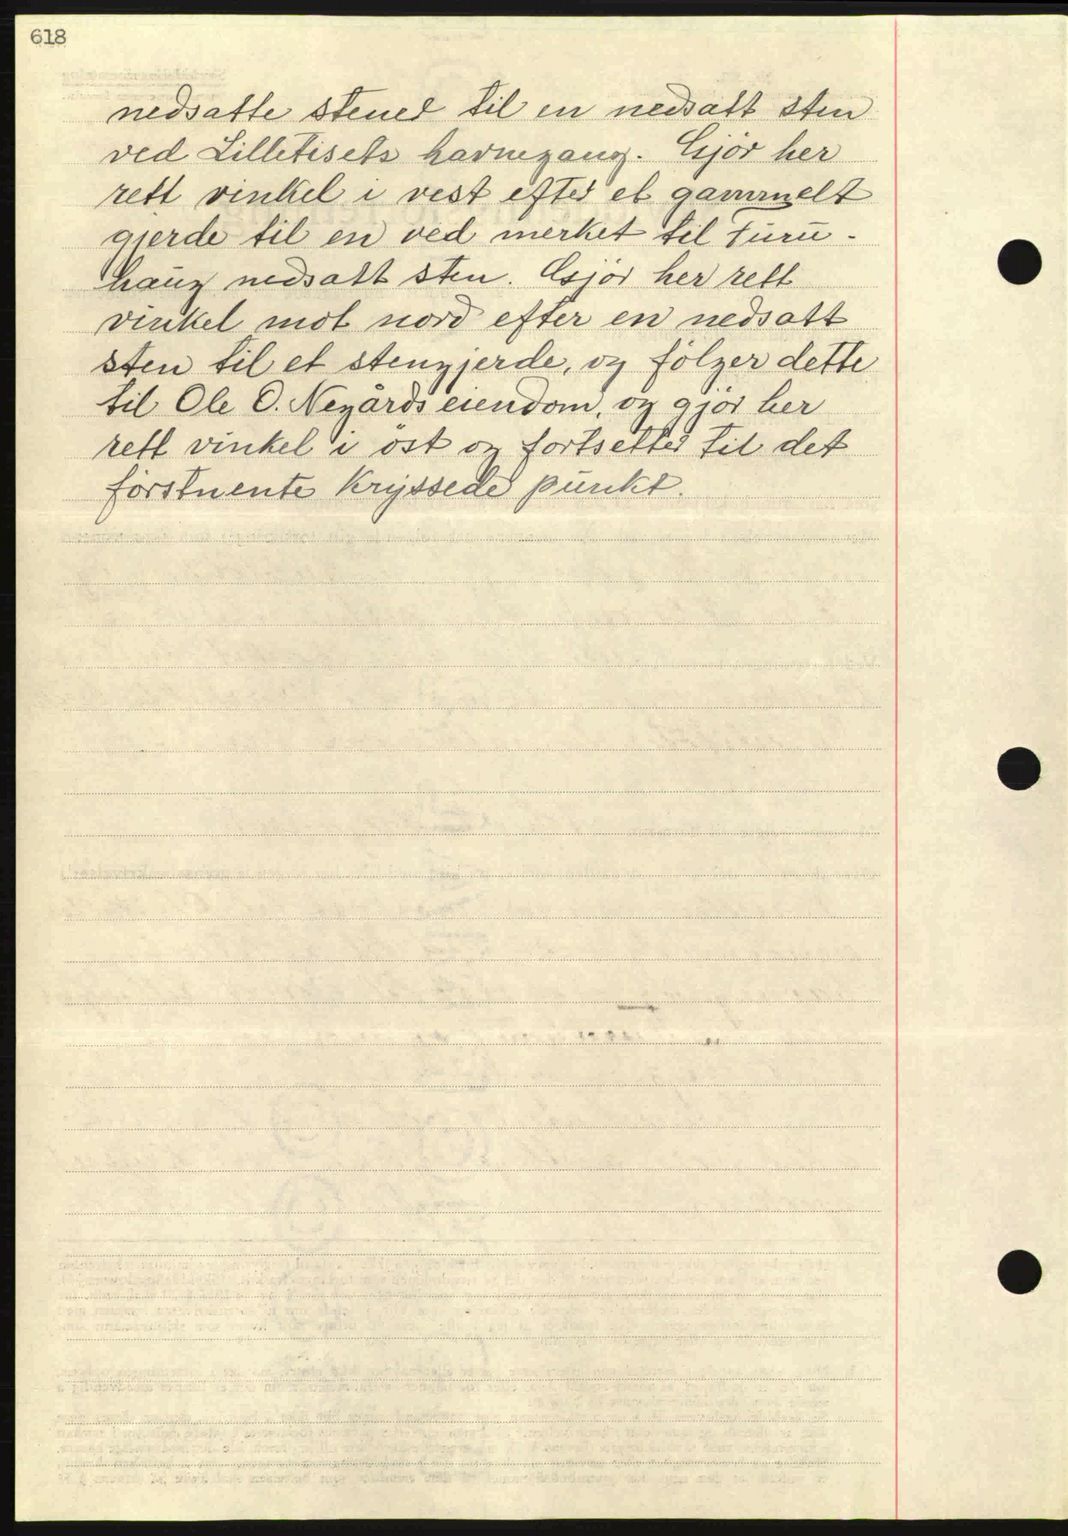 618
nedsatte stener til en nedsatt sten
ved Lilletisets havnegang. Gjör her
rett vinkel i vest efter et gammelt
gjerde til en ved merket til Furu-
haug nedsatt sten. Gjör her rett
vinkel mot nord efter en nedsatt
sten til et stengjerde, og fölger dette
til Ole O. Negårds eiendom, og gjör her
rett vinkel i öst og fortsetter til det
förstnente kryssede punkt.